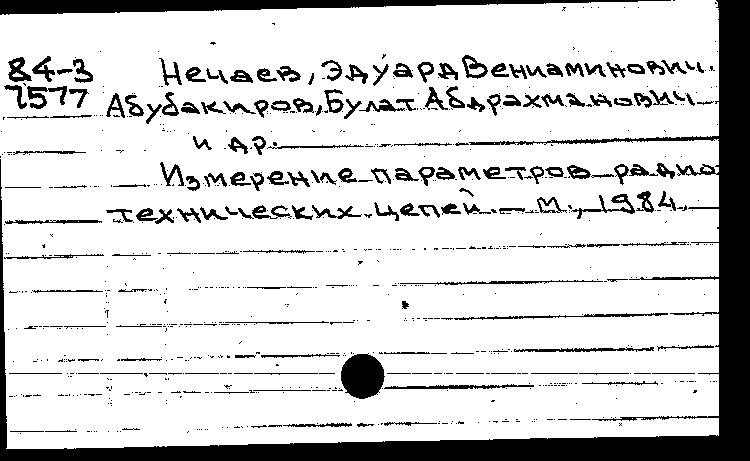 84-3 Нечаев, Эдуард Вениаминович.
7577 Абубакиров, Булат Абдрахманович
и др.
Измерение параметров радио
технических цепей. – М., 1984.